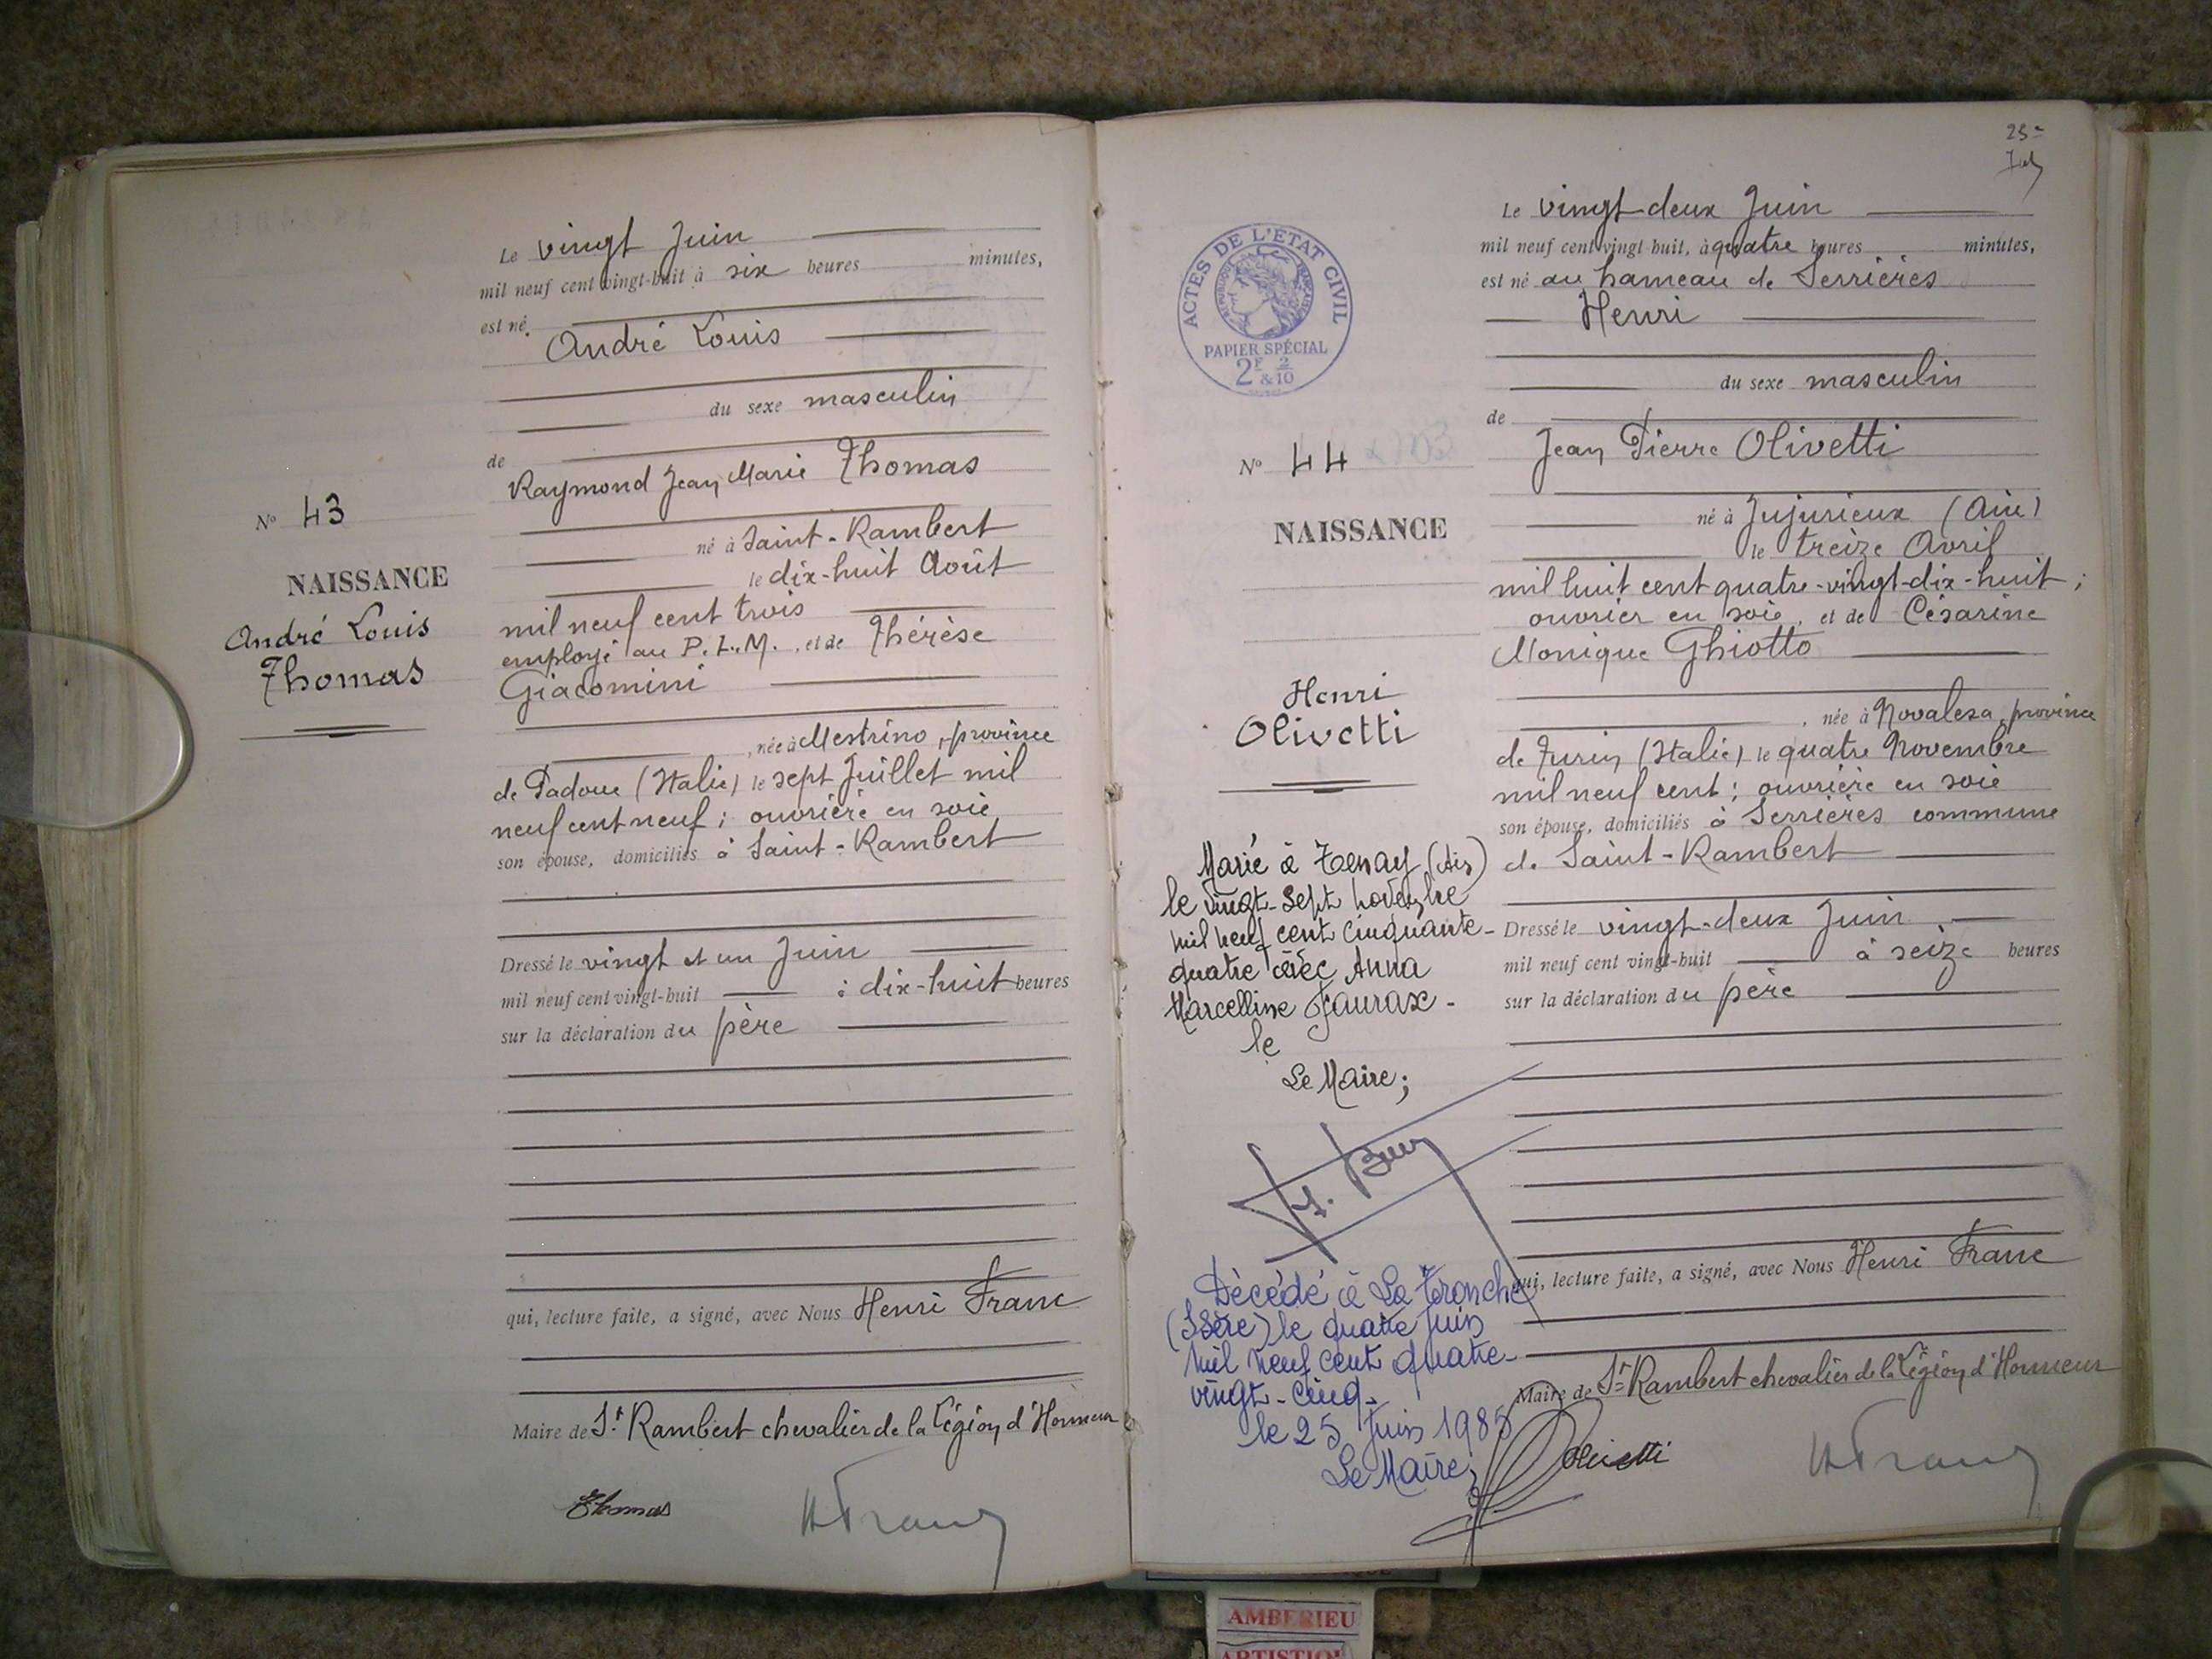 Le vingt Juin
mil neuf cent vingt-huit à six heures minutes,
est né
André Louis
du sexe masculin
de
Raymond Jean Marie Thomas
né à Saint-Rambert
le dix-huit Août
mil neuf cent trois
employé au P.L.M., et de Thérèse
Giacomini
, née à Mestrino, province
de Padoue (Italie) le sept Juillet mil
neuf cent neuf; ouvrière en soie
son épouse, domiciliés à Saint-Rambert
Dressé le vingt et un Juin
mil neuf cent vingt-huit à dix-huit heures
sur la déclaration du père
qui, lecture faite, a signé, avec Nous Henri Franc
Maire de St Rambert chevalier de la Légion d'Honneur
Thomas
HFranc
No 43
NAISSANCE
André Louis
Thomas
25e
ACTES DE L'ETAT CIVIL
REPUBLIQUE FRANÇAISE
PAPIER SPÉCIAL
2F & 2/10
No 44
NAISSANCE
Henri
Olivetti
Marié à Tenay (Ain)
le vingt-sept novembre
mil neuf cent cinquante-
quatre avec Anna
Marcelline
le
Le Maire;
Décédé à La Tronche
(Isère) le quatre juin
mil neuf cent quatre-
vingt-cinq.
le 25 Juin 1985
Le Maire;
Le vingt-deux Juin
mil neuf cent vingt-huit, à quatre heures minutes,
est né au hameau de Serrières
Henri
du sexe masculin
de
Jean Pierre Olivetti
né à Jujurieux (Ain)
le treize Avril
mil huit cent quatre-vingt-dix-huit;
ouvrier en soie, et de Césarine
Monique Ghiotto
, née à Novalesa, province
de Turin (Italie) le quatre Novembre
mil neuf cent; ouvrière en soie
son épouse, domiciliés à Serrières commune
de Saint-Rambert
Dressé le vingt-deux Juin
mil neuf cent vingt-huit à seize heures
sur la déclaration du père
qui, lecture faite, a signé, avec Nous Henri Franc
Maire de St Rambert chevalier de la Légion d'Honneur
Olivetti
HFranc
AMBERIEU